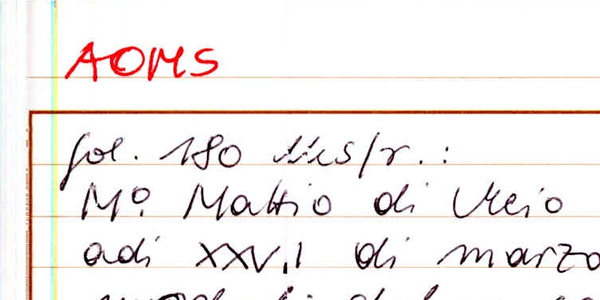 AOMS
fol. 180
Mº. Mattio di Meio
adi XXVI di marzo